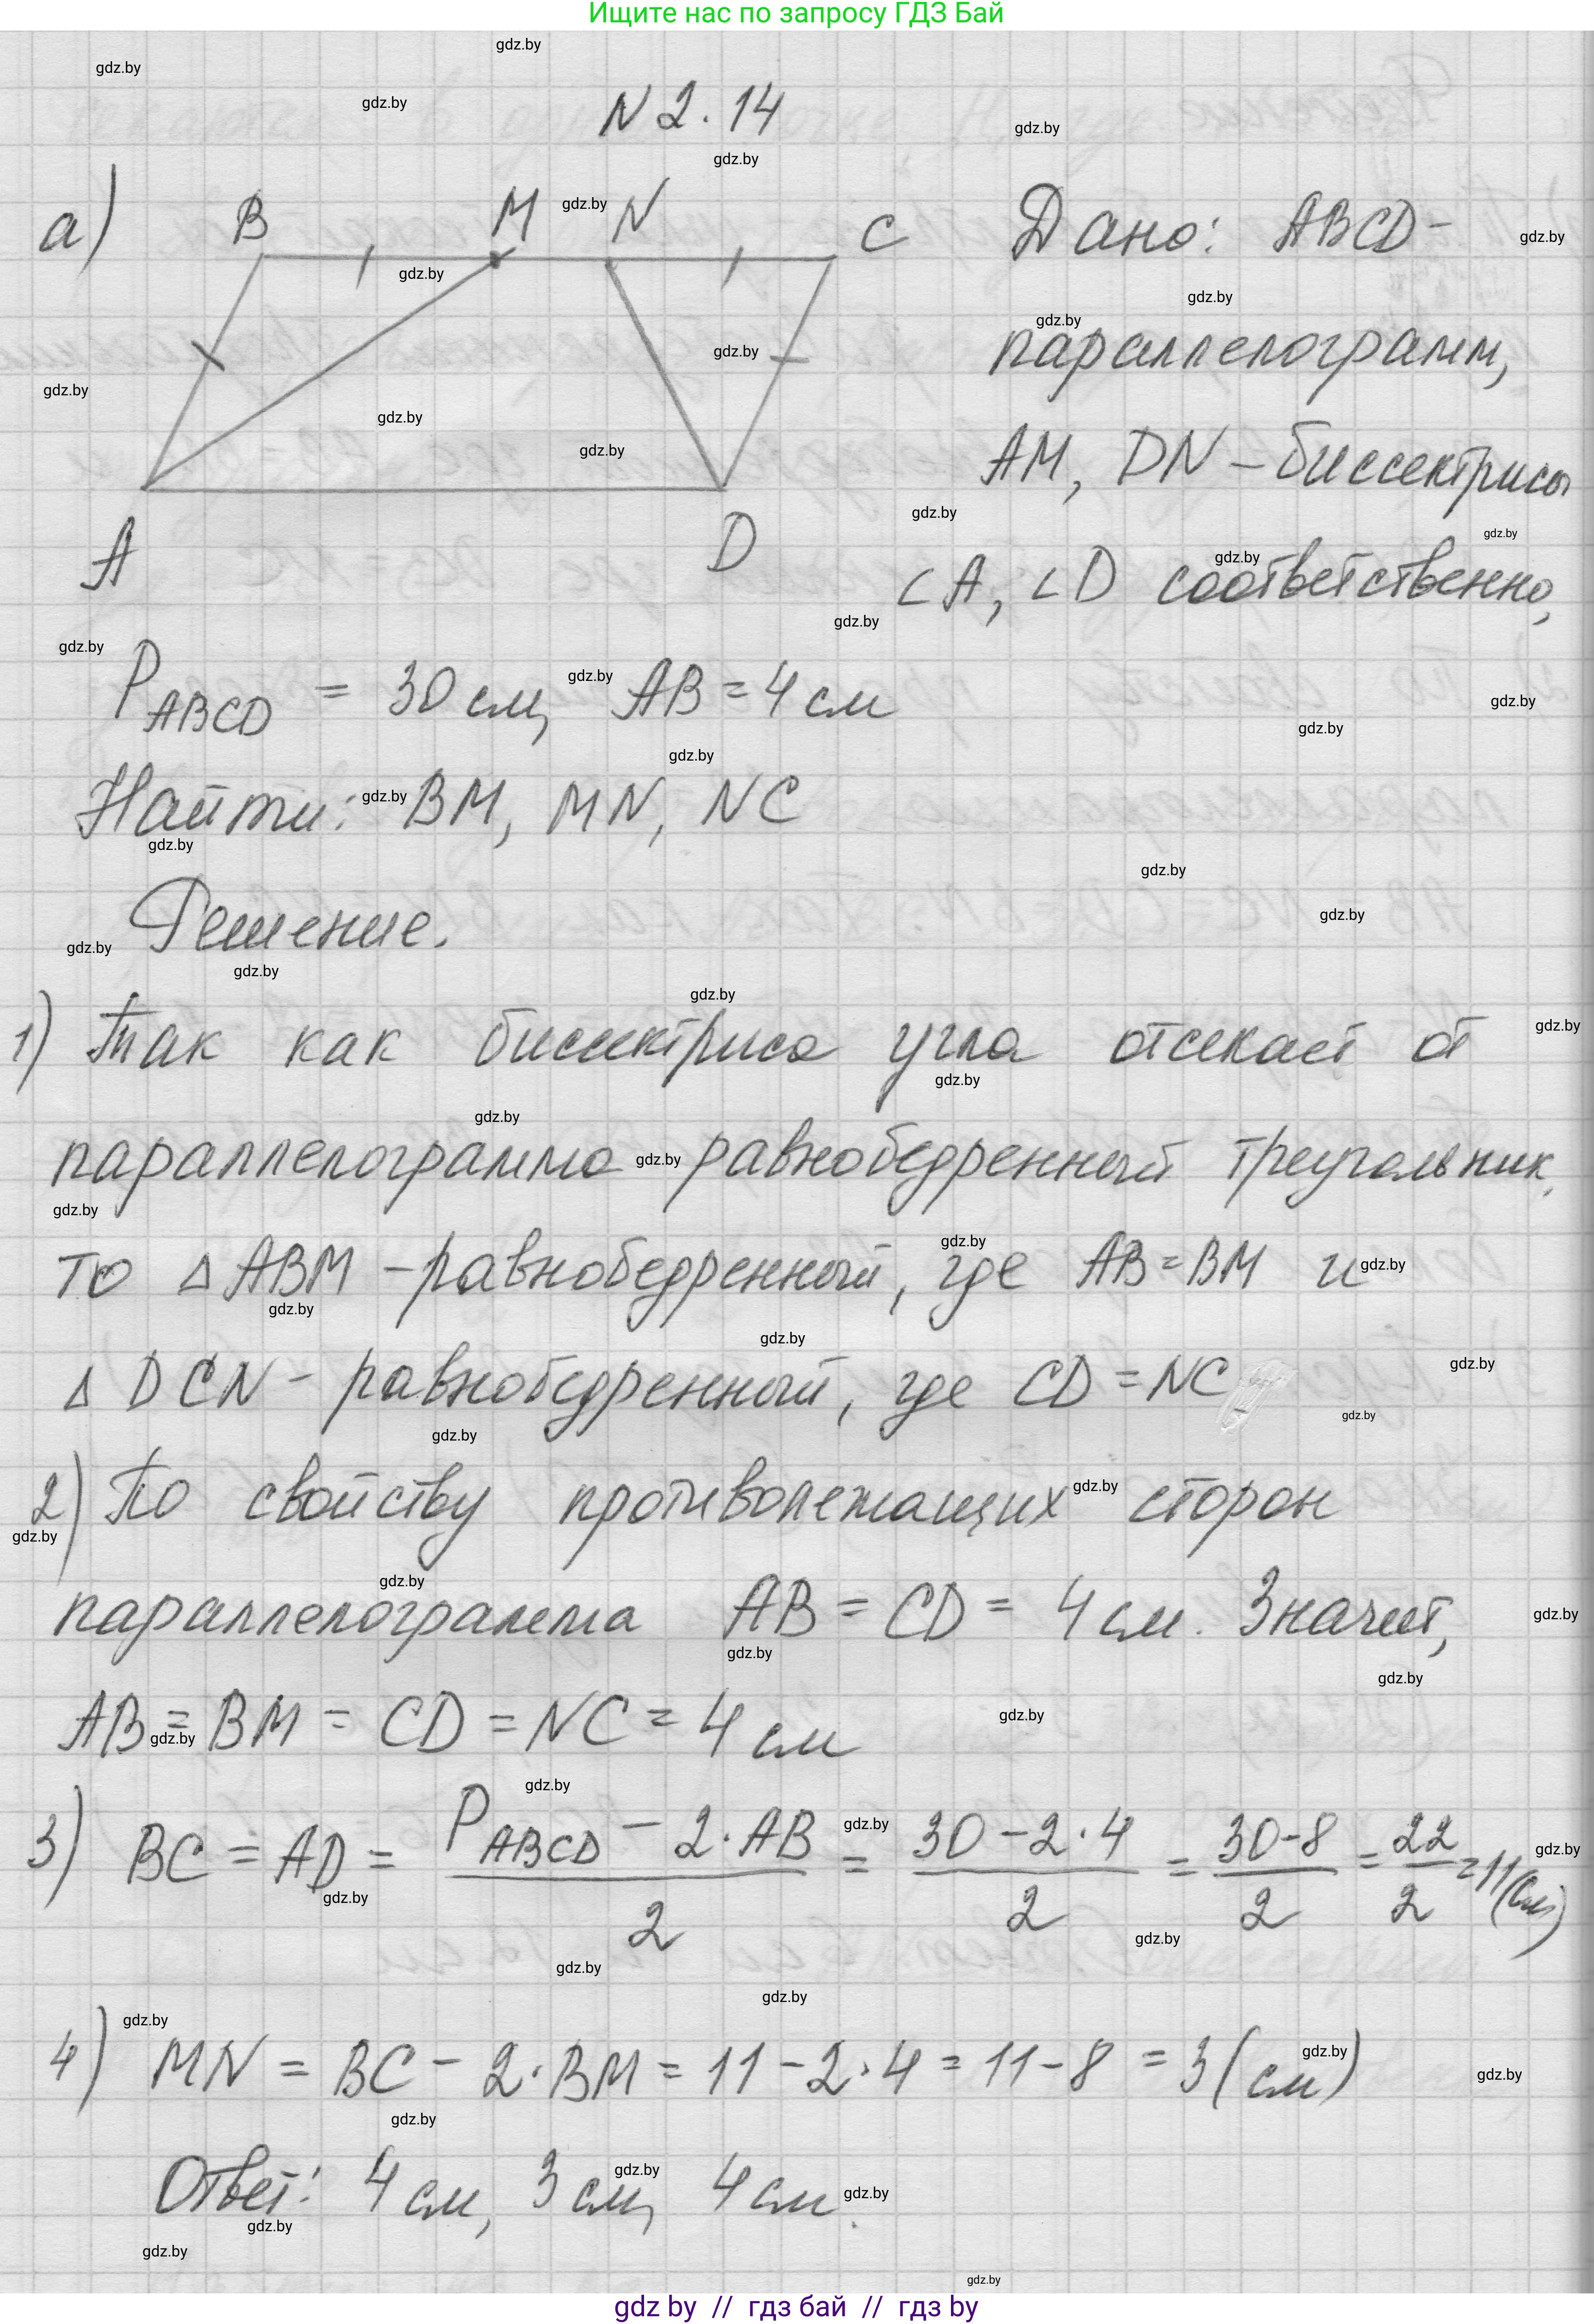 Ищите нас по запросу ГДЗ Бай
N 2.14
а) B M N C
A D
Дано: ABCD -
параллелограмм,
AM, DN - биссектрисы
∠A, ∠D соответственно,
P_ABCD = 30 см, AB = 4 см
Найти: BM, MN, NC
Решение.
1) Так как биссектриса угла отсекает от
параллелограмма равнобедренный треугольник,
то △ ABM - равнобедренный, где AB = BM и
△ DCN - равнобедренный, где CD = NC
2) По свойству противолежащих сторон
параллелограмма AB = CD = 4 см. Значит,
AB = BM = CD = NC = 4 см
3) BC = AD = (P_ABCD - 2·AB)/2 = (30 - 2·4)/2 = (30-8)/2 = 22/2 = 11 (см)
4) MN = BC - 2·BM = 11 - 2·4 = 11 - 8 = 3 (см)
Ответ: 4 см, 3 см, 4 см.
gdz by // гдз бай // гдз by